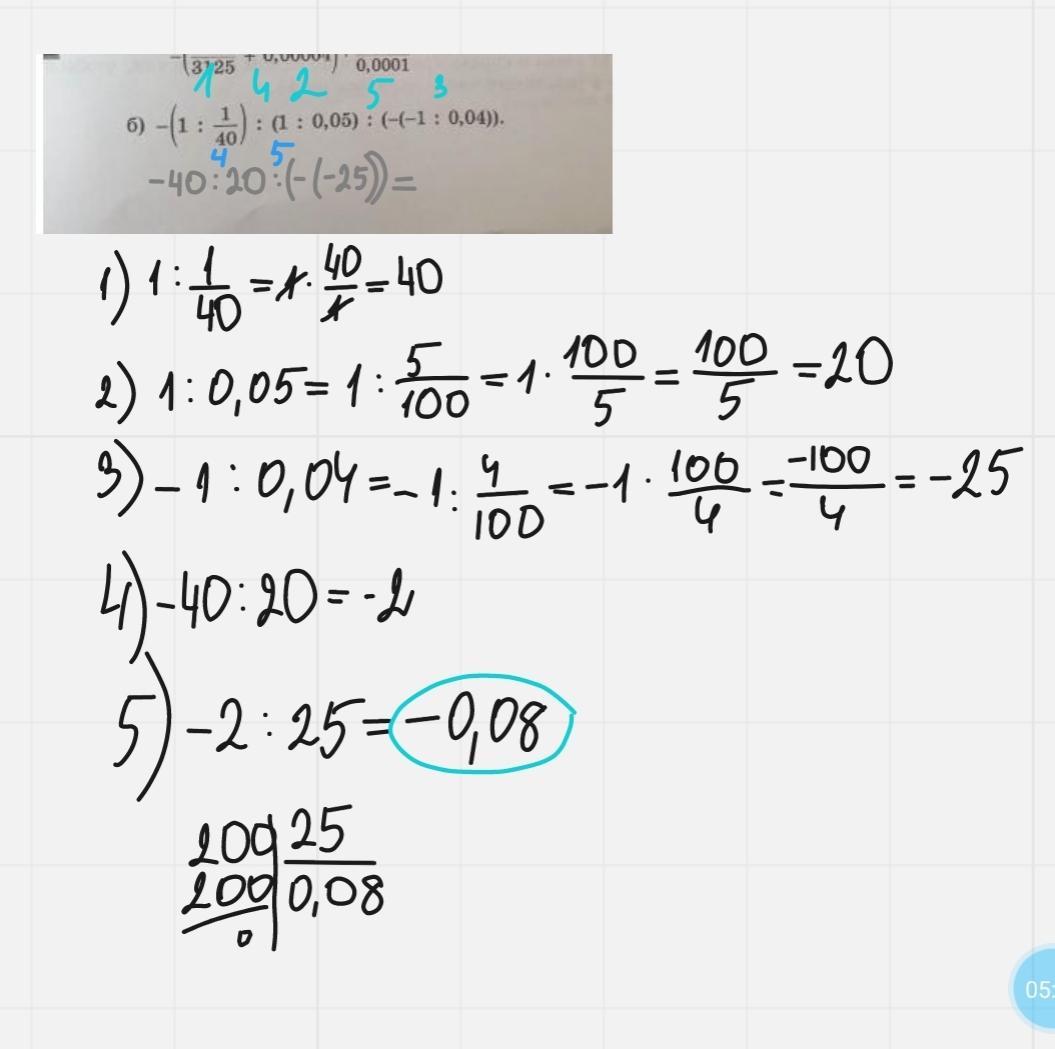 -(3125 + 0,00004) · 0,0001
1 4 2 5 3
б) -(1 : 1/40) : (1 : 0,05) : (-(-1 : 0,04)).
4 5
-40:20:(-(-25))=
1) 1:1/40=1·40/1=40
2) 1:0,05=1:5/100=1·100/5=100/5=20
3) -1:0,04=-1:4/100=-1·100/4=-100/4=-25
4) -40:20=-2
5) -2:25=-0,08
200 25
200 0,08
0
05: